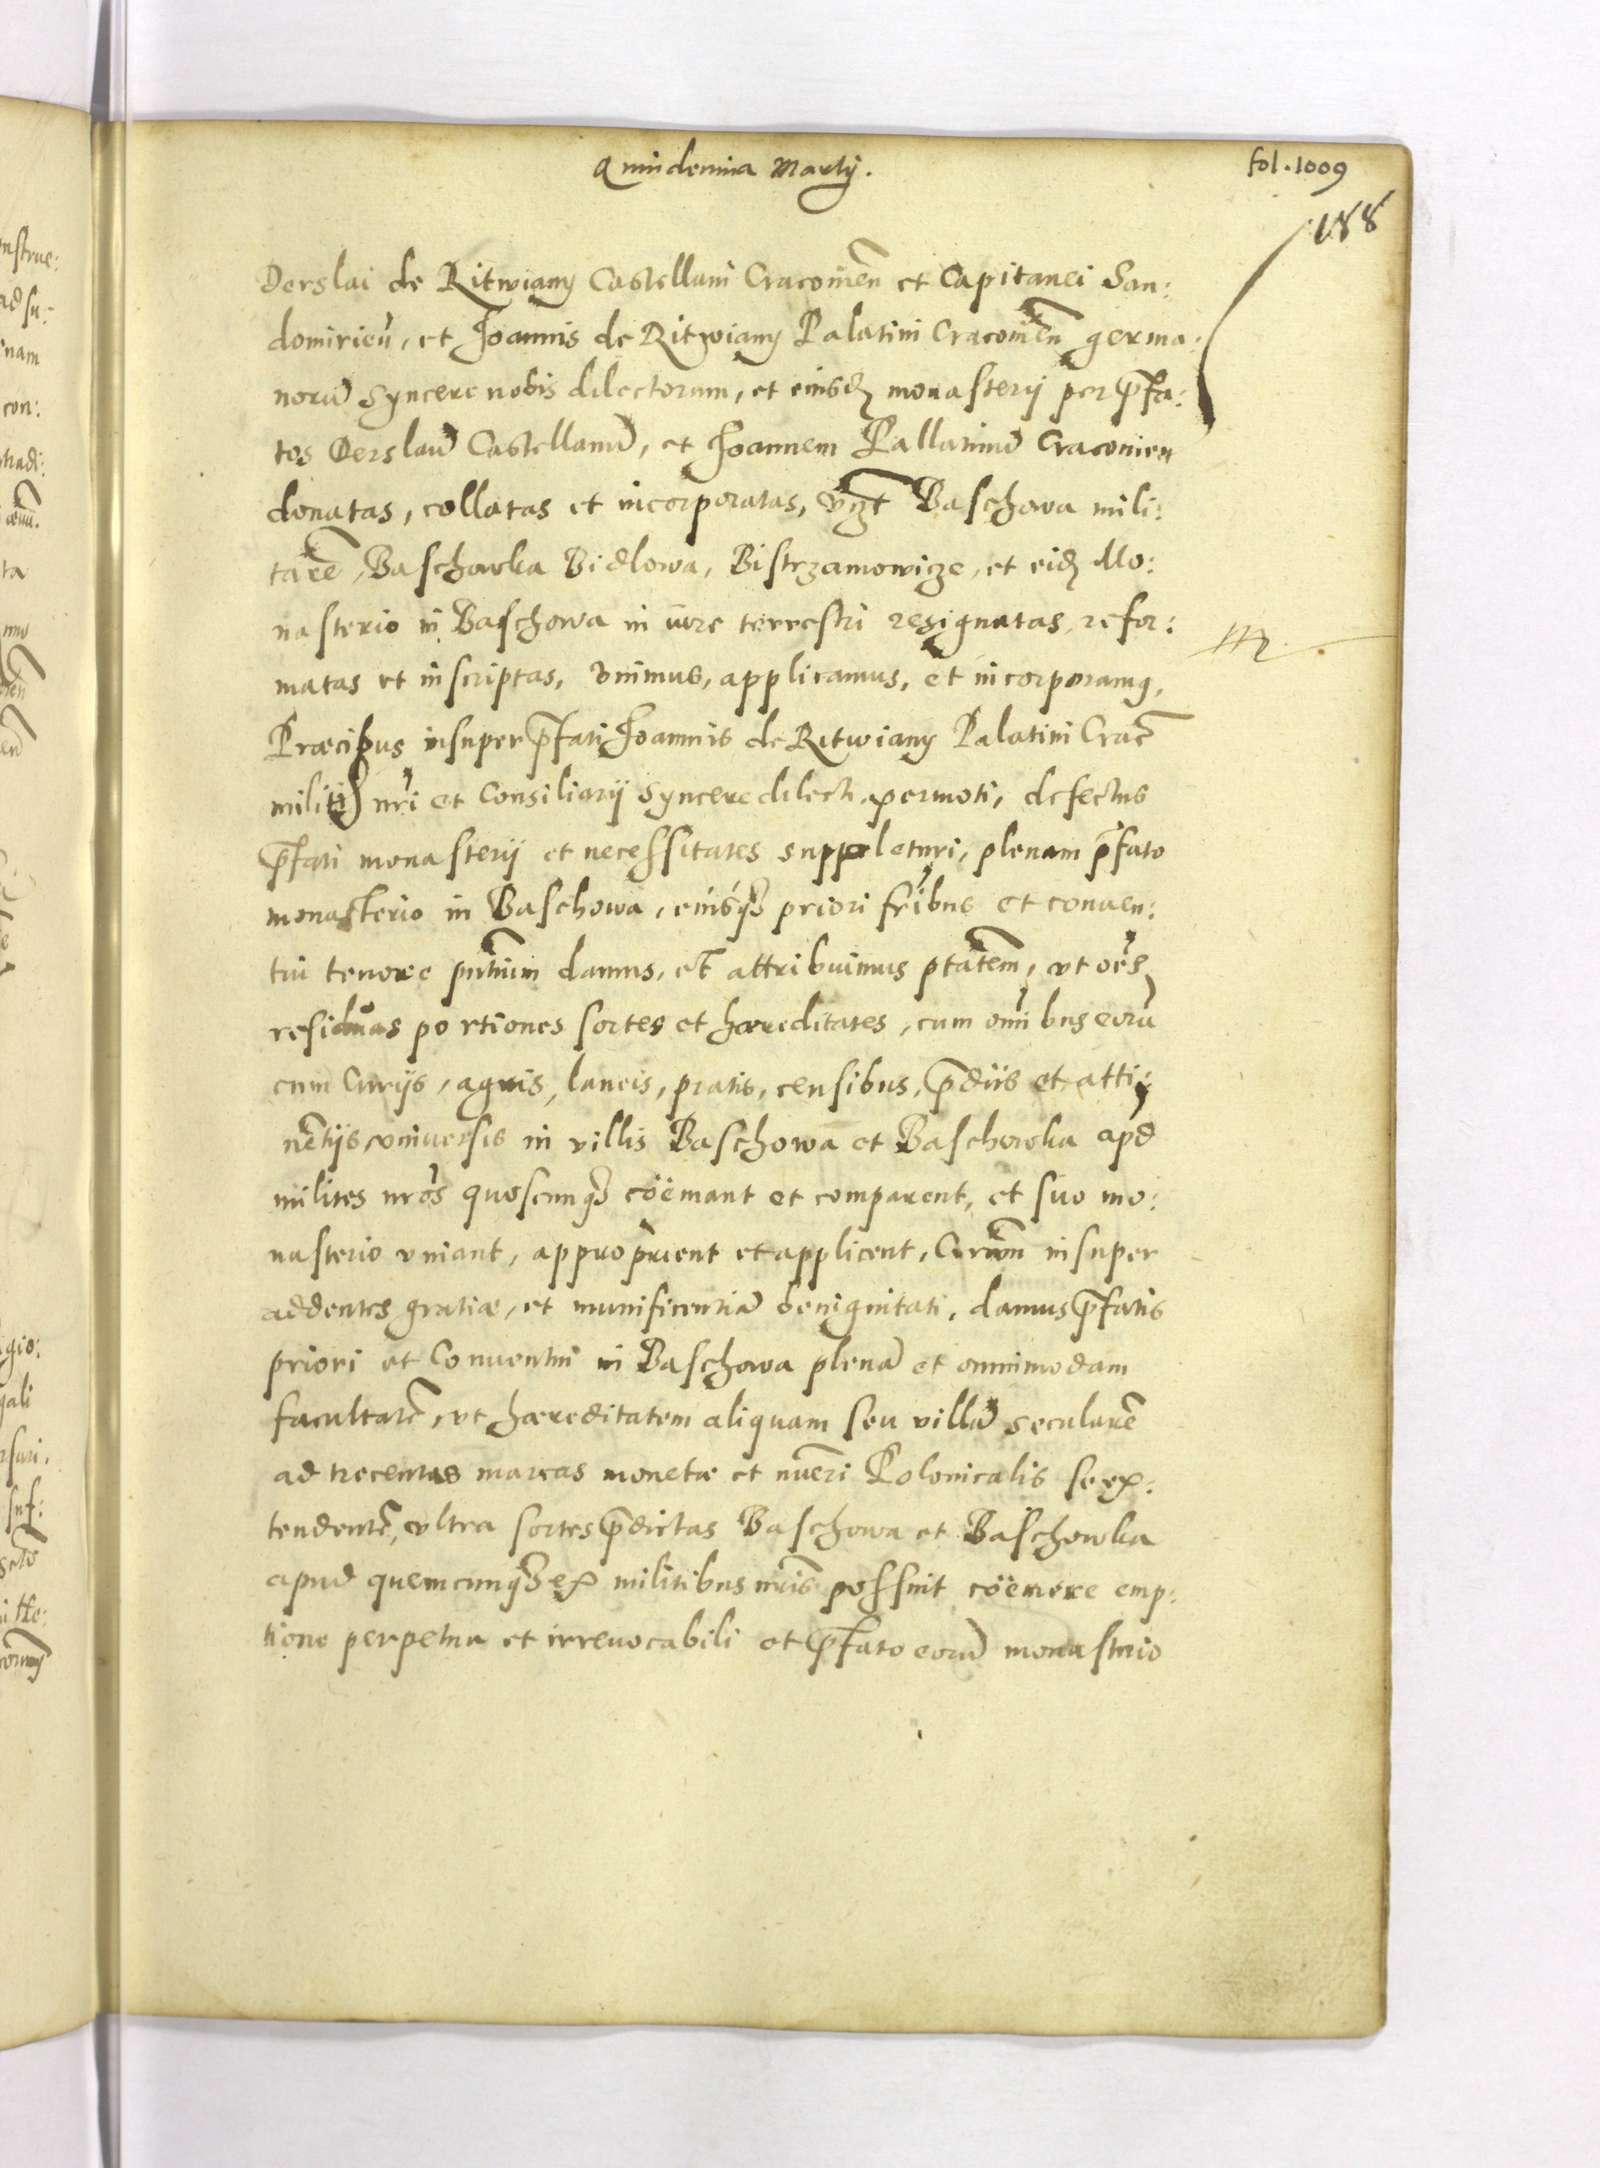 Quindenna Martij.
fol. 1009
188
Derslai de Ritwiany Castellani Cracovien̄ et Capitanei San:
domirien̄, et Joannis de Ritwiany Palatini Cracovien̄ germa:
norū syncere nobis dilectorum, et eiusdȝ monasterij per p̄fa:
tos Derslaū Castellanū, et Joannem Pallatinū Cracovien
donatas, collatas et incorporatas, vzt Baschowa mili:
tarē, Baschowka Bidlowa, Bistrzamowicze, et eidȝ Mo:
nasterio in Baschowa in iure terrestri resignatas, refor:
matas et inscriptas, vnimus, applicamus, et incorporamꝗ,
Præcibus insuper p̄fati Joannis de Ritwiany Palatini Crac̄
militis nr̄i et Consiliarij syncere dilecti permoti, defectus
p̄fati monasterij et necessitates suppleturi, plenam p̄fato
monasterio in Baschowa, eiusqȝ priori fr̄ibus et conven:
tui tenore pn̄tium damus, et attribuimus ptātem, vt oēs
residuas portiones sortes et hæreditates, cum om̄ibus eorū
cum Curijs, agris, laneis, pratis, censibus, p̄diis et atti:
nētijs vniversis in villis Baschowa et Baschowka apd
milites nr̄os quoscunqȝ coëmant et comparent, et suo mo:
nasterio vniant, approprient et applicent, insuper
addentes gratiæ, et munificentiæ benignitati, damus p̄fatis
priori et Conventui in Baschowa plenā et omnimodam
facultatē, vt hæreditatem aliquam seu villā secularē
ad trecentas marcas monetæ et nūeri Polonicalis se ex:
tendentē, vltra sortes p̄dictas Baschowa et Baschowka
apud quemcunqȝ ex militibus nr̄is possint coëmere emp:
tione perpetua et irrevocabili et p̄fato eorū monasterio